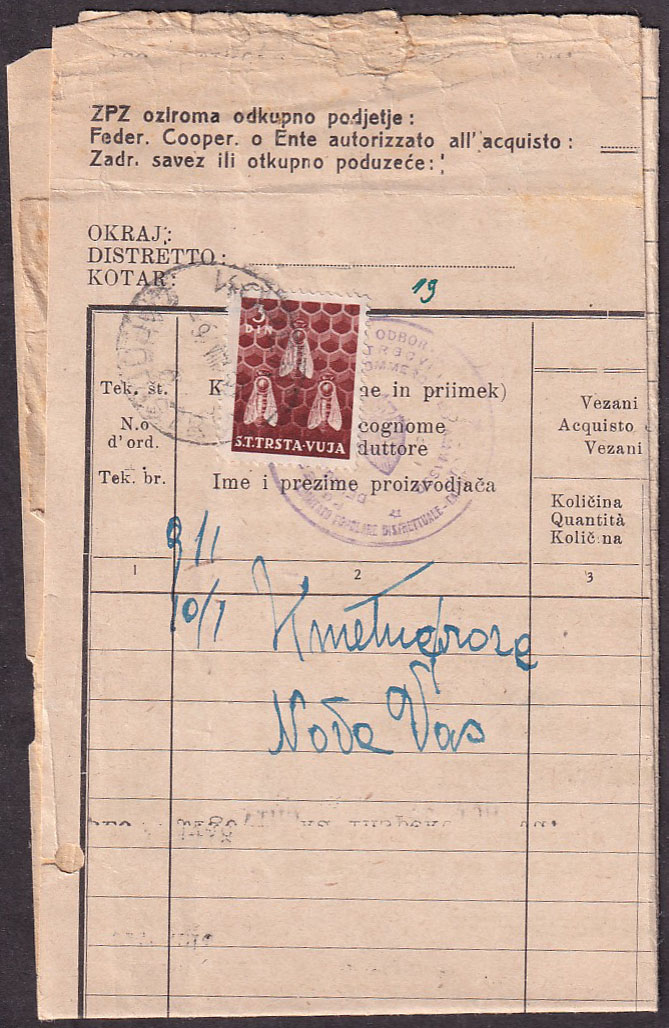 ZPZ oziroma odkupno podjetje :
Feder. Cooper. o Ente autorizzato all' acquisto :
Zadr. savez ili otkupno poduzeće :
OKRAJ:
DISTRETTO:
KOTAR:
19
3
DIN
S.T.TRSTA-VUJA
ODBOR
POPOLARE DISTRETTUALE
Tek. št.
N.o
d'ord.
Tek. br.
K
in priimek)
cognome
duttore
Ime i prezime proizvodjača
Vezani
Acquisto
Vezani
Količina
Quantità
Količina
1
2
3
911
10/1
Nova Vas